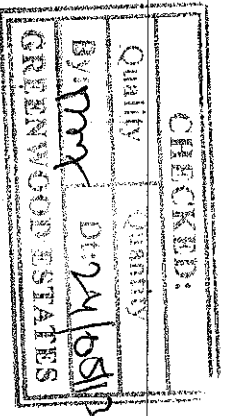 CHECKED:
Quality Quanity
By: Dt: 24/08/12
GREENWOOD ESTATES